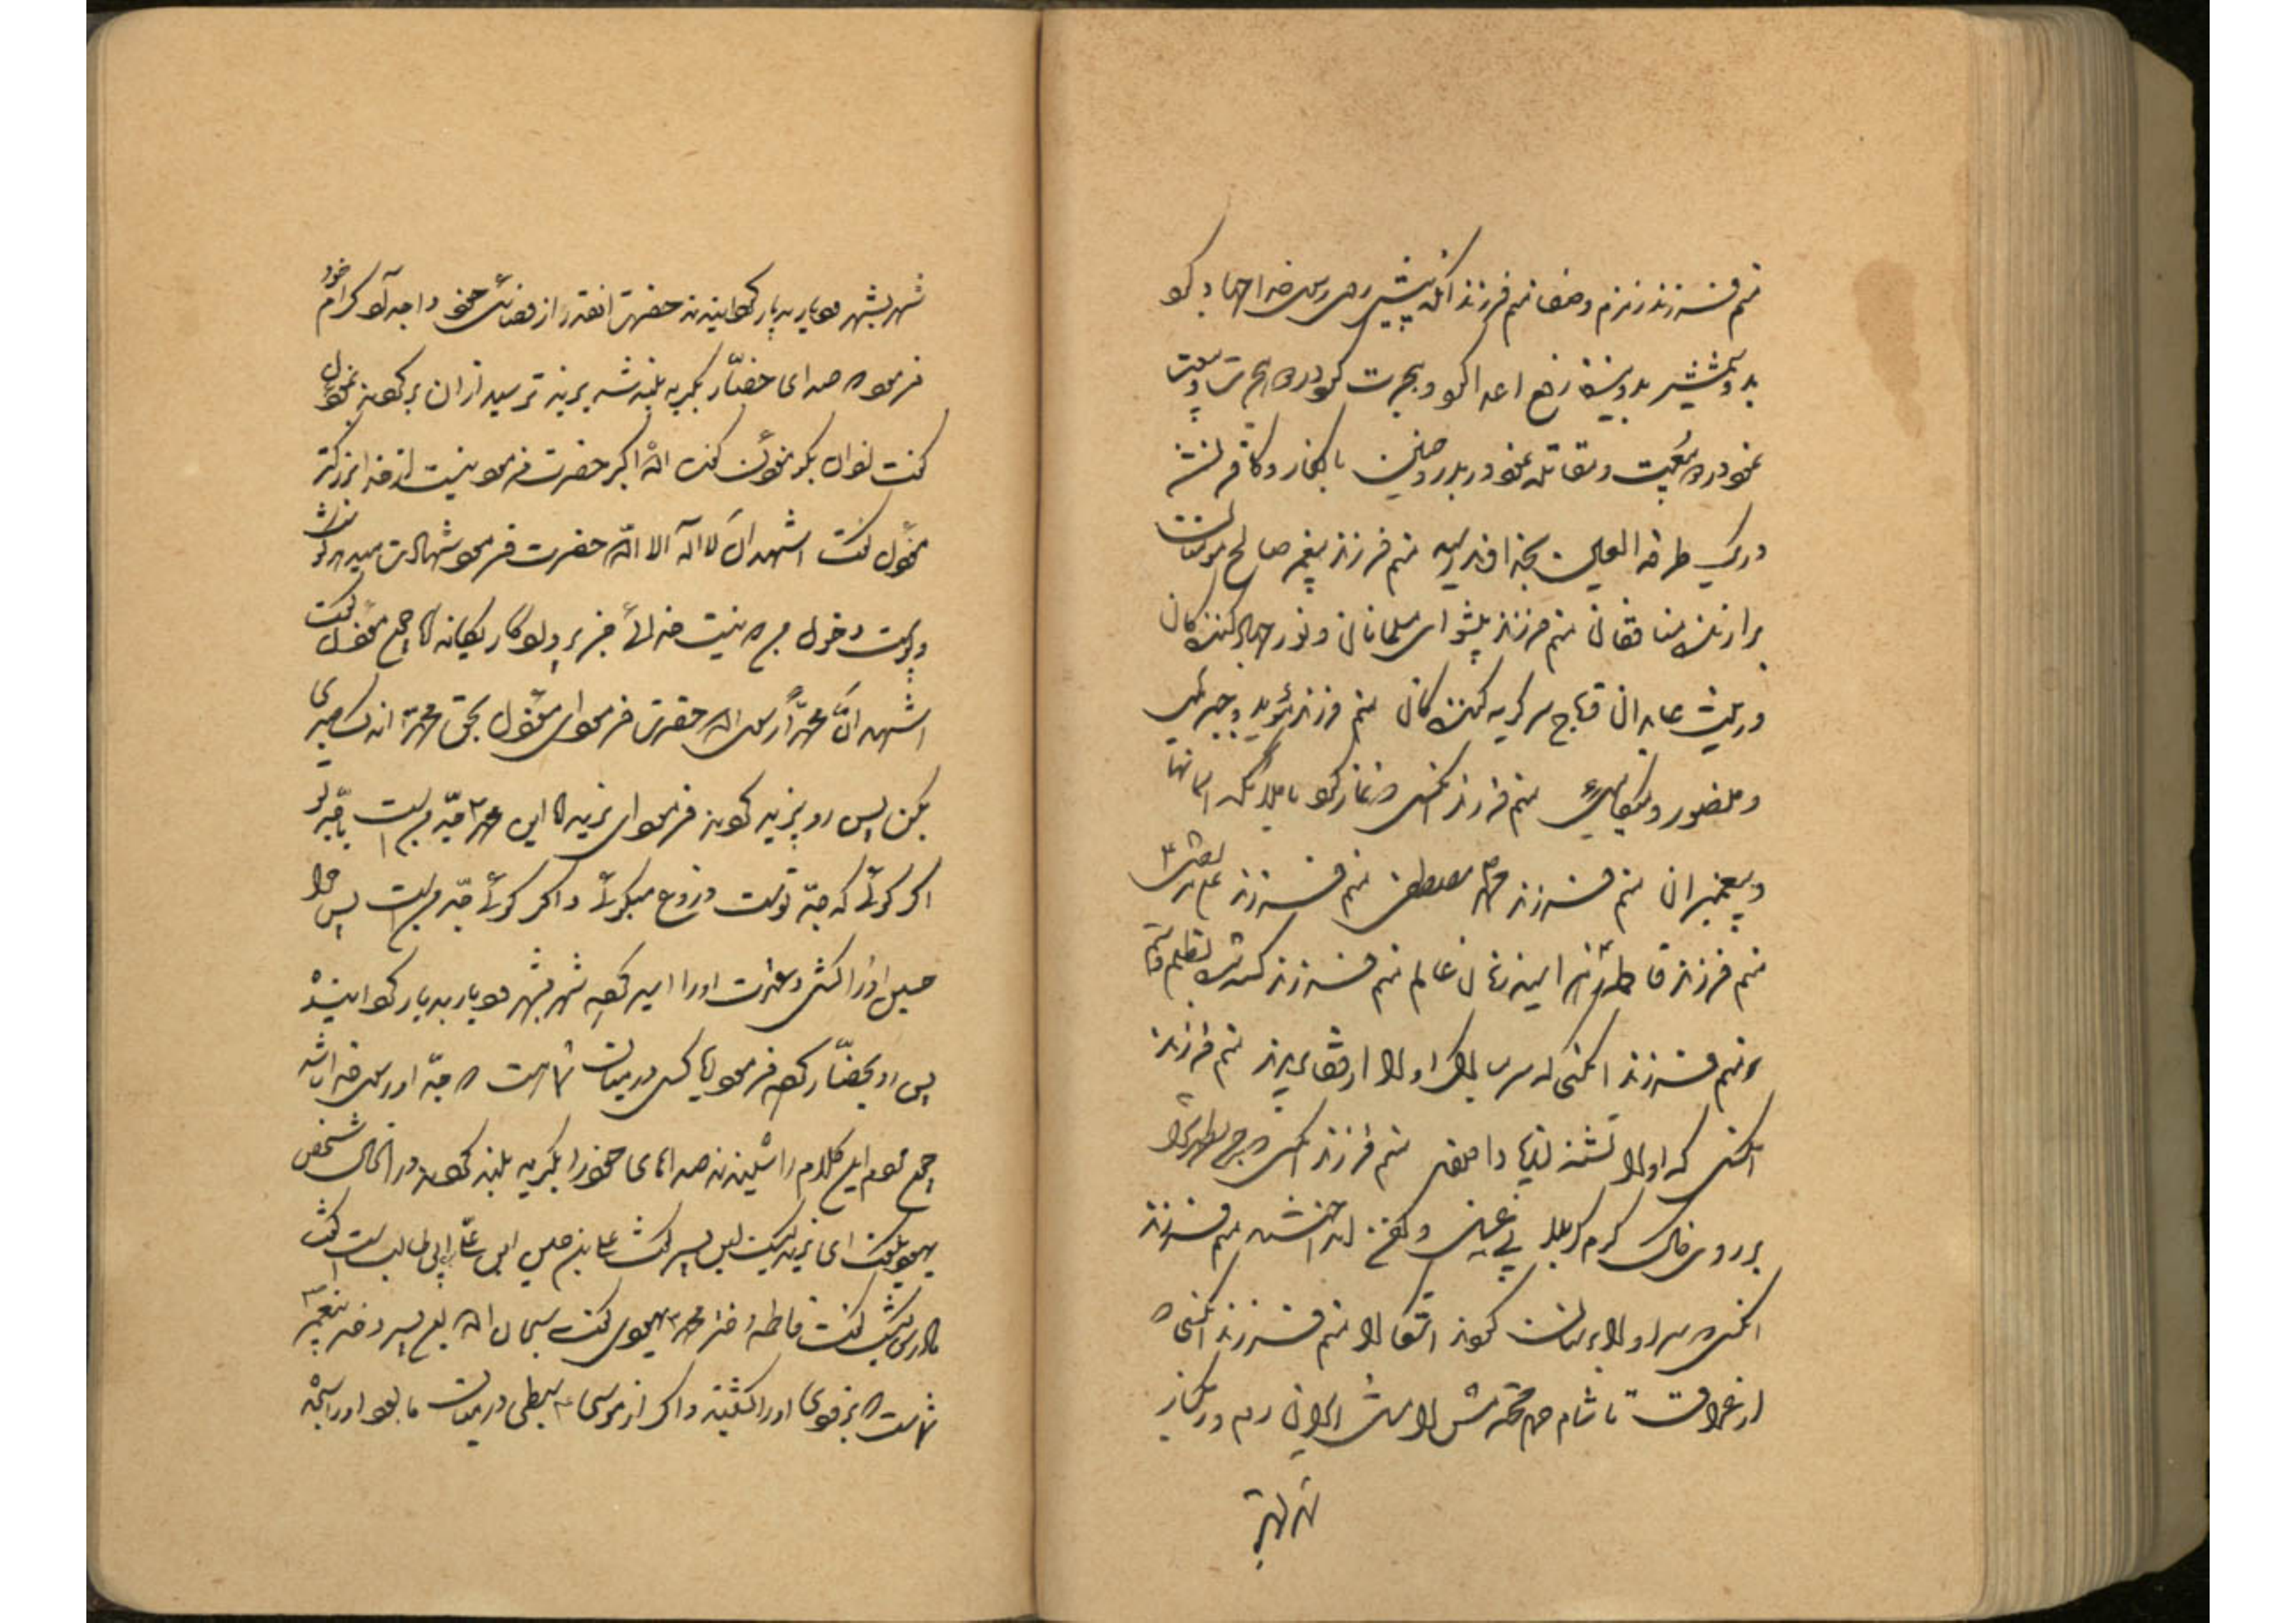 منم فرزند زمزم و صفا منم فرزند آنکه پیش روی رسول خدا جهاد کرد
بدو شمشیر بدو نیزه دفع اعدا کرد و هجرت کرد دو هجرت و بیعت
نمود دو بیعت و مقاتله نمود در بدر و حنین با کفار و کافر نشد
در یک طرفة العین بخدا منم فرزند پیغمبر صالح مؤمنان
براندازنده منافقان منم فرزند پیشوای مسلمانان و نور جهاد کنندگان
و زینت عابدان و تاج سر گریه کنندگان منم فرزند مؤید بجبرئیل
و منصور و میکائیل منم فرزند آنکسی که نماز کرد با ملائکه آسمانها
و پیغمبران منم فرزند محمد مصطفی منم فرزند علی مرتضی
منم فرزند فاطمه زهرا سیده زنان عالم منم فرزند کشته بظلم و ستم
منم فرزند آنکسی که سر مبارک او را از قفا بریدند منم فرزند
آنکسی که او را تشنه منم فرزند آنکسی که جسم مطهرش را
بر روی خاک گرم کربلا بی غسل و کفن انداختند منم فرزند
آنکسی که سر او را بر سنان کردند اشقیا منم فرزند آنکسی که
از عراق تا شام حرم محترمش را
شهر بشهر
شهر بشهر دیار بدیار گردانیدند حضرت آنقدر از فضائل خود و اجداد کرام خود
فرمود که صدای حضار بگریه بلند شد یزید ترسید از آن برگردند بمؤذن
گفت اذان بگو مؤذن گفت الله اکبر حضرت فرمود نیست از خدا بزرگتر
مؤذن گفت اشهد ان لا اله الا الله حضرت فرمود شهادت میدهد
و پوست و خون من که نیست خدائی بجز پروردگار یگانه مؤذن گفت
اشهد ان محمدا رسول الله حضرت فرمود ای مؤذن بحق محمد اندک صبری
بکن پس رو بیزید کردند فرمود ای یزید این محمد جد من است یا جد تو
اگر گوئی که جد تو است دروغ میگوئی و اگر گوئی جد من است پس چرا
حسین او را کشتی و عترت او را اسیر کرده شهر بشهر دیار بدیار گردانیدی
پس رو بحضار کرده فرمود آیا کسی در میان شما هست که جد او رسول خدا باشد
جمیع مردم این کلام را شنیدند صداهای خود را بگریه بلند کردند در آنحال شخص
یهودی گفت ای یزید کیست این پسر گفت علی بن حسین ابن علی ابن ابی طالب است گفت
مادرش کیست گفت فاطمه دختر محمد یهودی گفت سبحان الله این پسر دختر پیغمبر
شماست که بزودی او را کشتید و اگر از موسی سبطی در میان ما بود او را سجده